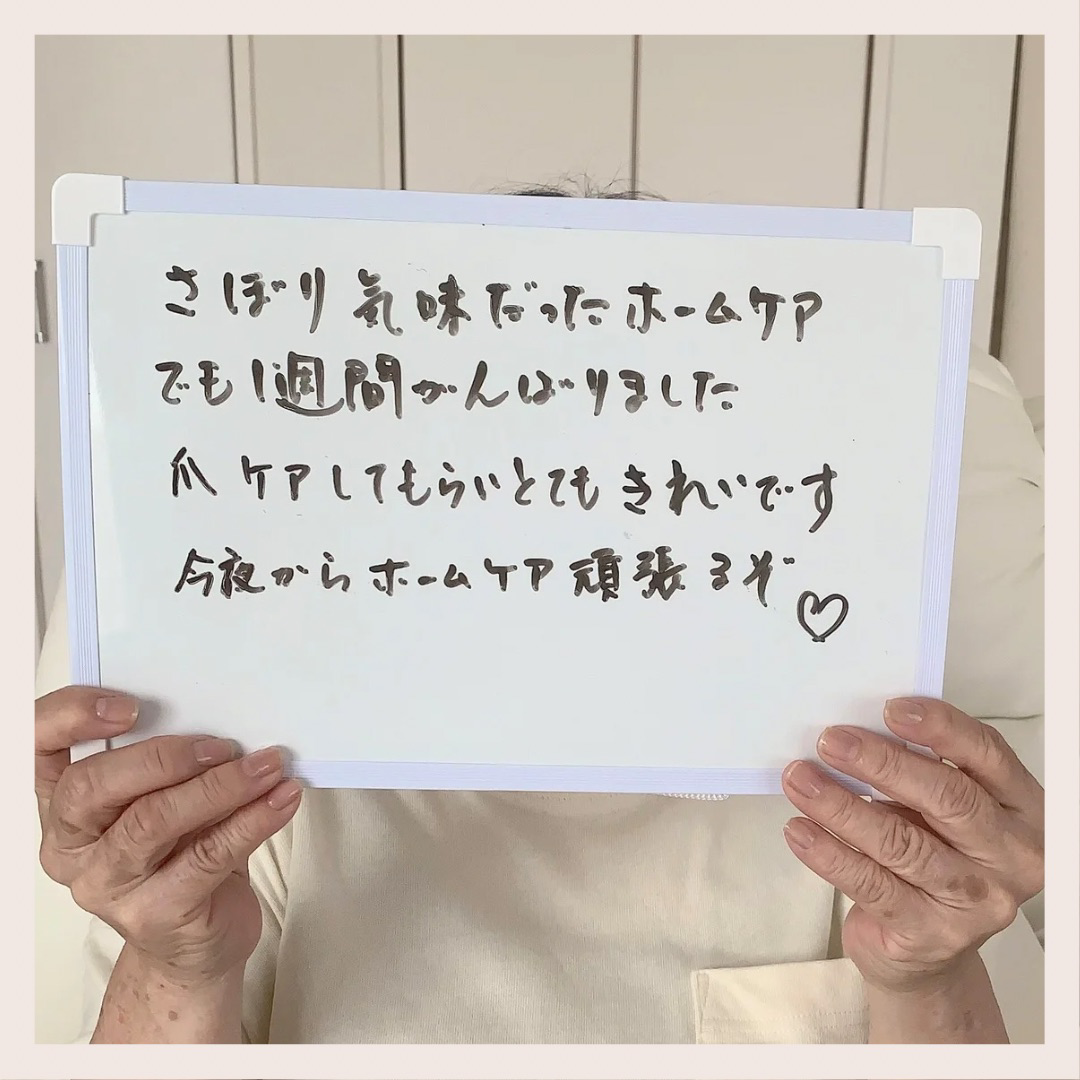 さぼり気味だったホームケア
でも1週間がんばりました
爪ケアしてもらいとてもきれいです
今夜からホームケア頑張るぞ♡